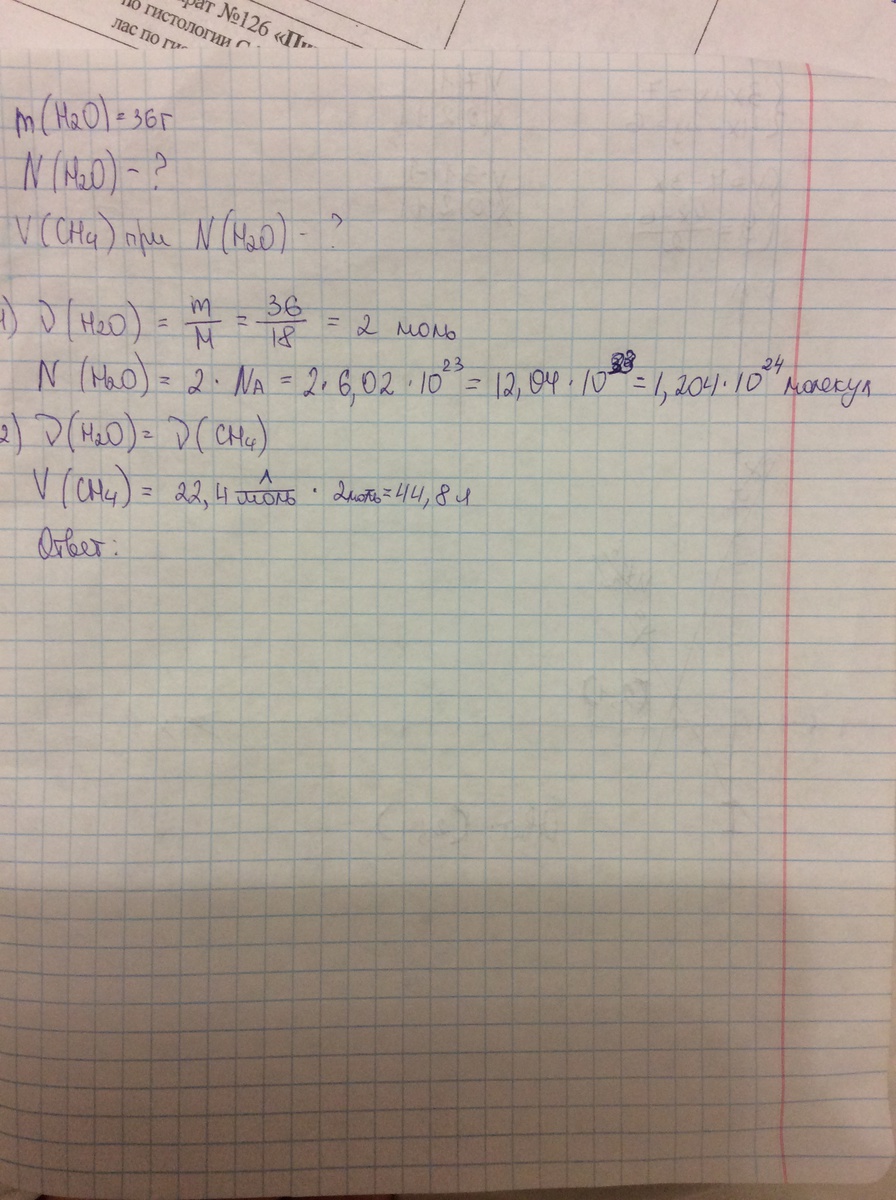 рат №126 «Пи
по гистологии С
лас по ги
m(H₂O)=36г
N(H₂O)-?
V(CH₄) при N(H₂O)-?
1) ν(H₂O) = m/M = 36/18 = 2 моль
N (H₂O) = 2 · NA = 2 · 6,02 · 10²³ = 12,04 · 10²³ = 1,204 · 10²⁴ молекул
2) ν(H₂O) = ν(CH₄)
V(CH₄) = 22,4 л/моль · 2моль=44,8 л
Ответ: